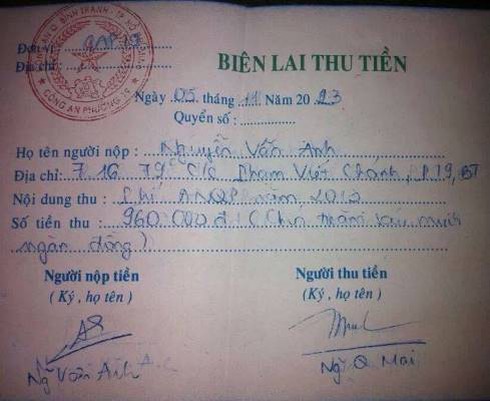 CÔNG AN PHƯỜNG 19
Đơn vị
Địa chỉ:
BIÊN LAI THU TIỀN
Ngày 05 tháng 11 Năm 20
Quyển số :
Họ tên người nộp : Nguyễn Vấn Anh
Địa chỉ: 7.16 79 C/c Phạm Viết Chánh, P19, BT
Nội dung thu : Phí ANQP năm 2012
Số tiền thu : 960.000 đ ( Chín trăm sáu mươi
ngàn đồng )
Người nộp tiền Người thu tiền
( Ký , họ tên ) ( Ký , họ tên )
Ng Vấn Anh Ng Q Mai